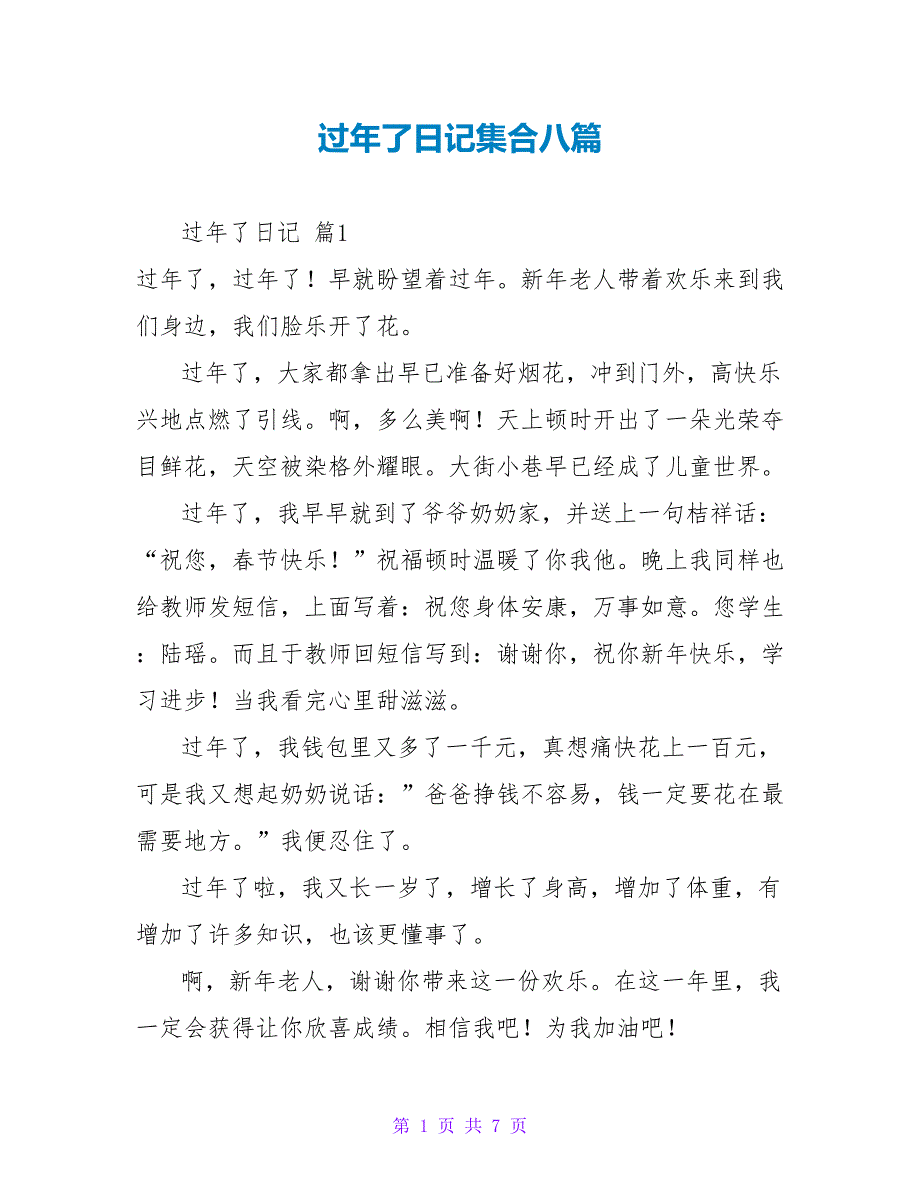 过年了日记集合八篇
过年了日记 篇1
过年了，过年了！早就盼望着过年。新年老人带着欢乐来到我
们身边，我们脸乐开了花。
过年了，大家都拿出早已准备好烟花，冲到门外，高快乐
兴地点燃了引线。啊，多么美啊！天上顿时开出了一朵光荣夺
目鲜花，天空被染格外耀眼。大街小巷早已经成了儿童世界。
过年了，我早早就到了爷爷奶奶家，并送上一句桔祥话：
“祝您，春节快乐！”祝福顿时温暖了你我他。晚上我同样也
给教师发短信，上面写着：祝您身体安康，万事如意。您学生
：陆瑶。而且于教师回短信写到：谢谢你，祝你新年快乐，学
习进步！当我看完心里甜滋滋。
过年了，我钱包里又多了一千元，真想痛快花上一百元，
可是我又想起奶奶说话：”爸爸挣钱不容易，钱一定要花在最
需要地方。”我便忍住了。
过年了啦，我又长一岁了，增长了身高，增加了体重，有
增加了许多知识，也该更懂事了。
啊，新年老人，谢谢你带来这一份欢乐。在这一年里，我
一定会获得让你欣喜成绩。相信我吧！为我加油吧！
第 1 页 共 7 页